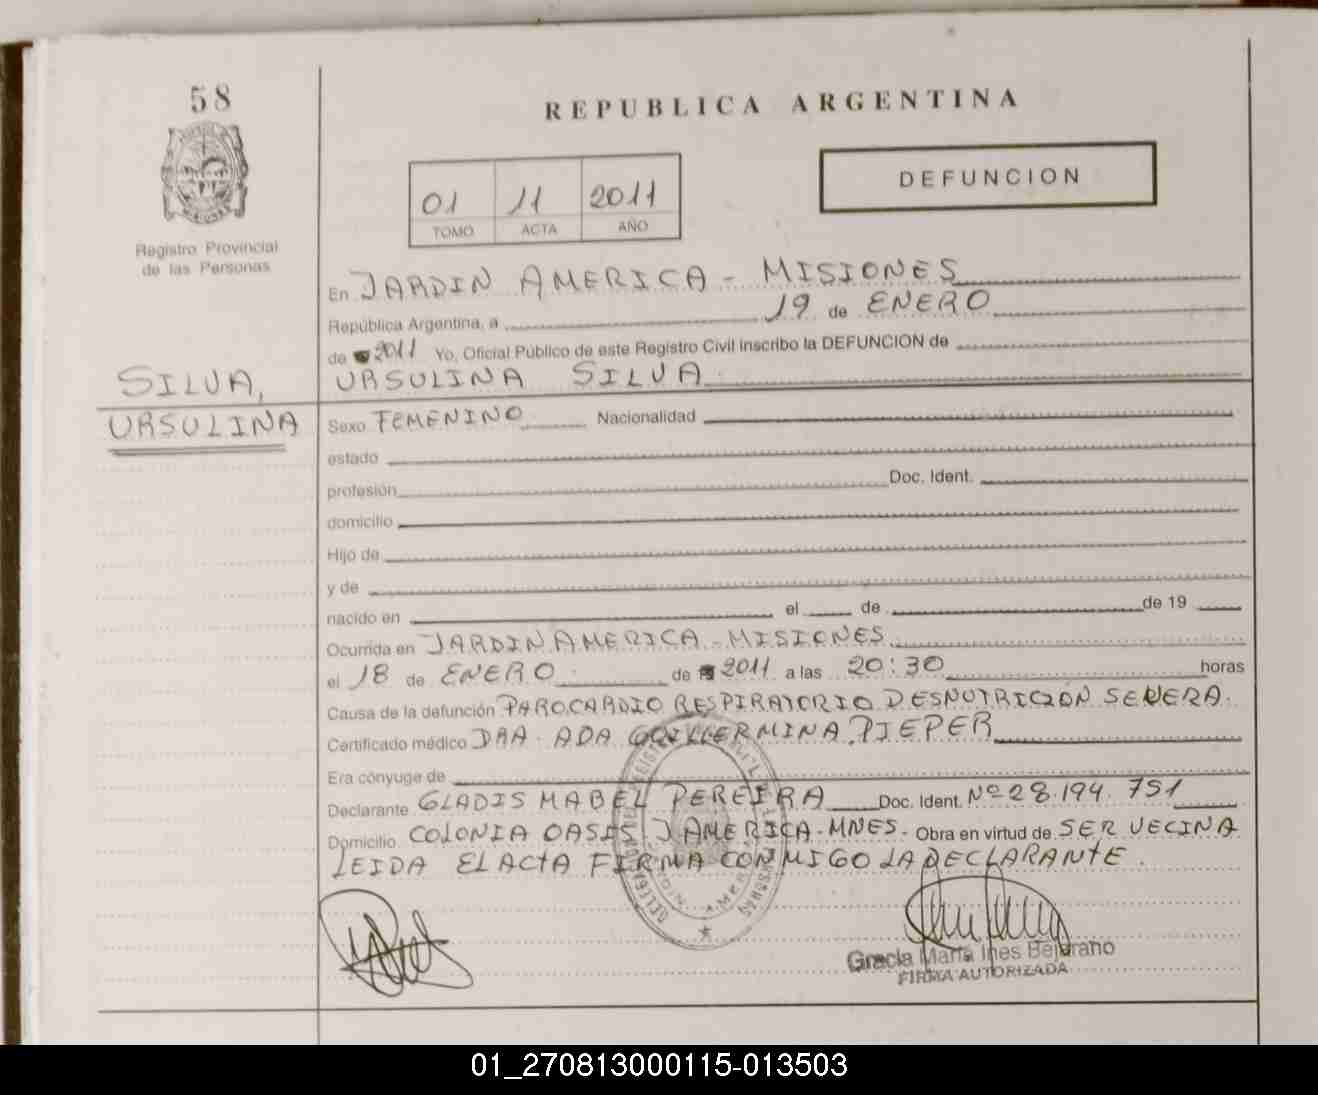 58
REPUBLICA ARGENTINA
01 11 2011
TOMO ACTA AÑO
DEFUNCION
Registro Provincial
de las Personas
En JARDIN AMERICA - MISIONES
República Argentina, a 19 de ENERO
de 2011 Yo, Oficial Público de este Registro Civil inscribo la DEFUNCION de
URSULINA SILVA.
SILVA,
URSULINA
Sexo FEMENINO Nacionalidad
estado
profesión Doc. Ident.
domicilio
Hijo de
y de
nacido en el de de 19
Ocurrida en JARDIN AMERICA - MISIONES
el 18 de ENERO de 2011 a las 20:30 horas
Causa de la defunción PAROCARDIO RESPIRATORIO DESNUTRICION SEVERA.
Certificado médico DRA. ADA GUILLERMINA PIEPER
Era cónyuge de
Declarante GLADIS MABEL PEREIRA Doc. Ident. Nº 28.194.751
Domicilio COLONIA OASIS J. AMERICA - MNES. Obra en virtud de SER VECINA
LEIDA EL ACTA FIRMA CONMIGO LA DECLARANTE.
Gracia María Ines Bejarano
FIRMA AUTORIZADA
01_270813000115-013503